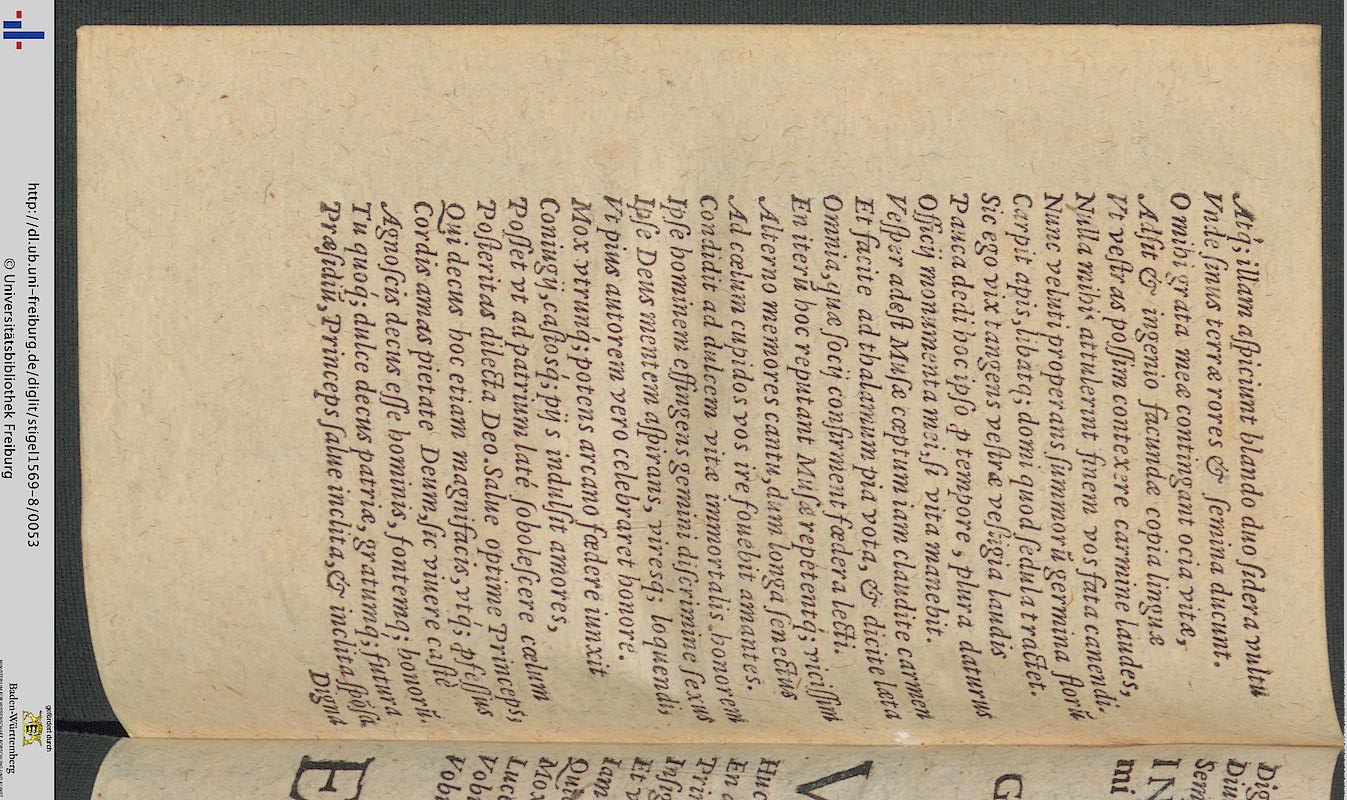 Atq; illam aſpiciunt blando duo ſidera vultu
Vnde ſinus terræ rores & ſemina ducunt.
O mihi grata meæ contingant ocia vitæ,
Adſit & ingenio facundæ copia linguæ
Vt veſtras poſſim contexere carmine laudes,
Nulla mihi attulerint finem vos fata canendi,
Nunc veluti properans ſummorũ germina florũ
Carpit apis, libatq; domi quod ſedula tractet.
Sic ego vix tangens veſtræ veſtigia laudis
Pauca dedi hoc ipſo p tempore, plura daturus
Officij monumenta mei, ſi vita manebit.
Veſper adeſt Muſæ cœptum iam claudite carmen
Et facite ad thalamum pia vota, & dicite læta
Omnia, quæ ſocij confirment fœdera lecti.
En iterũ hoc reputant Muſæ repetentq; viciſſim
Alterno memores cantu, dum longa ſenectus
Ad cœlum cupidos vos ire fouebit amantes.
Condidit ad dulcem vitæ immortalis honorem
Ipſe hominem effingens gemini diſcrimine ſexus
Ipſe Deus mentem aſpirans, viresq; loquendi,
Vt pius autorem vero celebraret honore.
Mox vtrunq; potens arcano fœdere iunxit
Coniugij, caſtosq; pijs indulſit amores,
Poſſet vt ad patrium laté ſoboleſcere cœlum
Poſteritas dilecta Deo. Salue optime Princeps,
Qui decus hoc etiam magnificis, vtq; pfeſſus
Cordis amas pietate Deum, ſic viuere caſtè
Agnoſcis decus eſſe hominis, fontemq; honorũ.
Tu quoq; dulce decus patriæ, gratumq; futura
Præſidiũ, Princeps ſalue inclita, & inclita ſpõſa
Digna
Dig
Diu
Sere
IN
mi
G
V
Huc
En
Prin
Inſig
Et v
Iam
Qui
Mox
Luce
Vobi
Vobi
E
http://dl.ub.uni-freiburg.de/diglit/stigel1569-8/0053
© Universitätsbibliothek Freiburg
gefördert durch
Baden-Württemberg